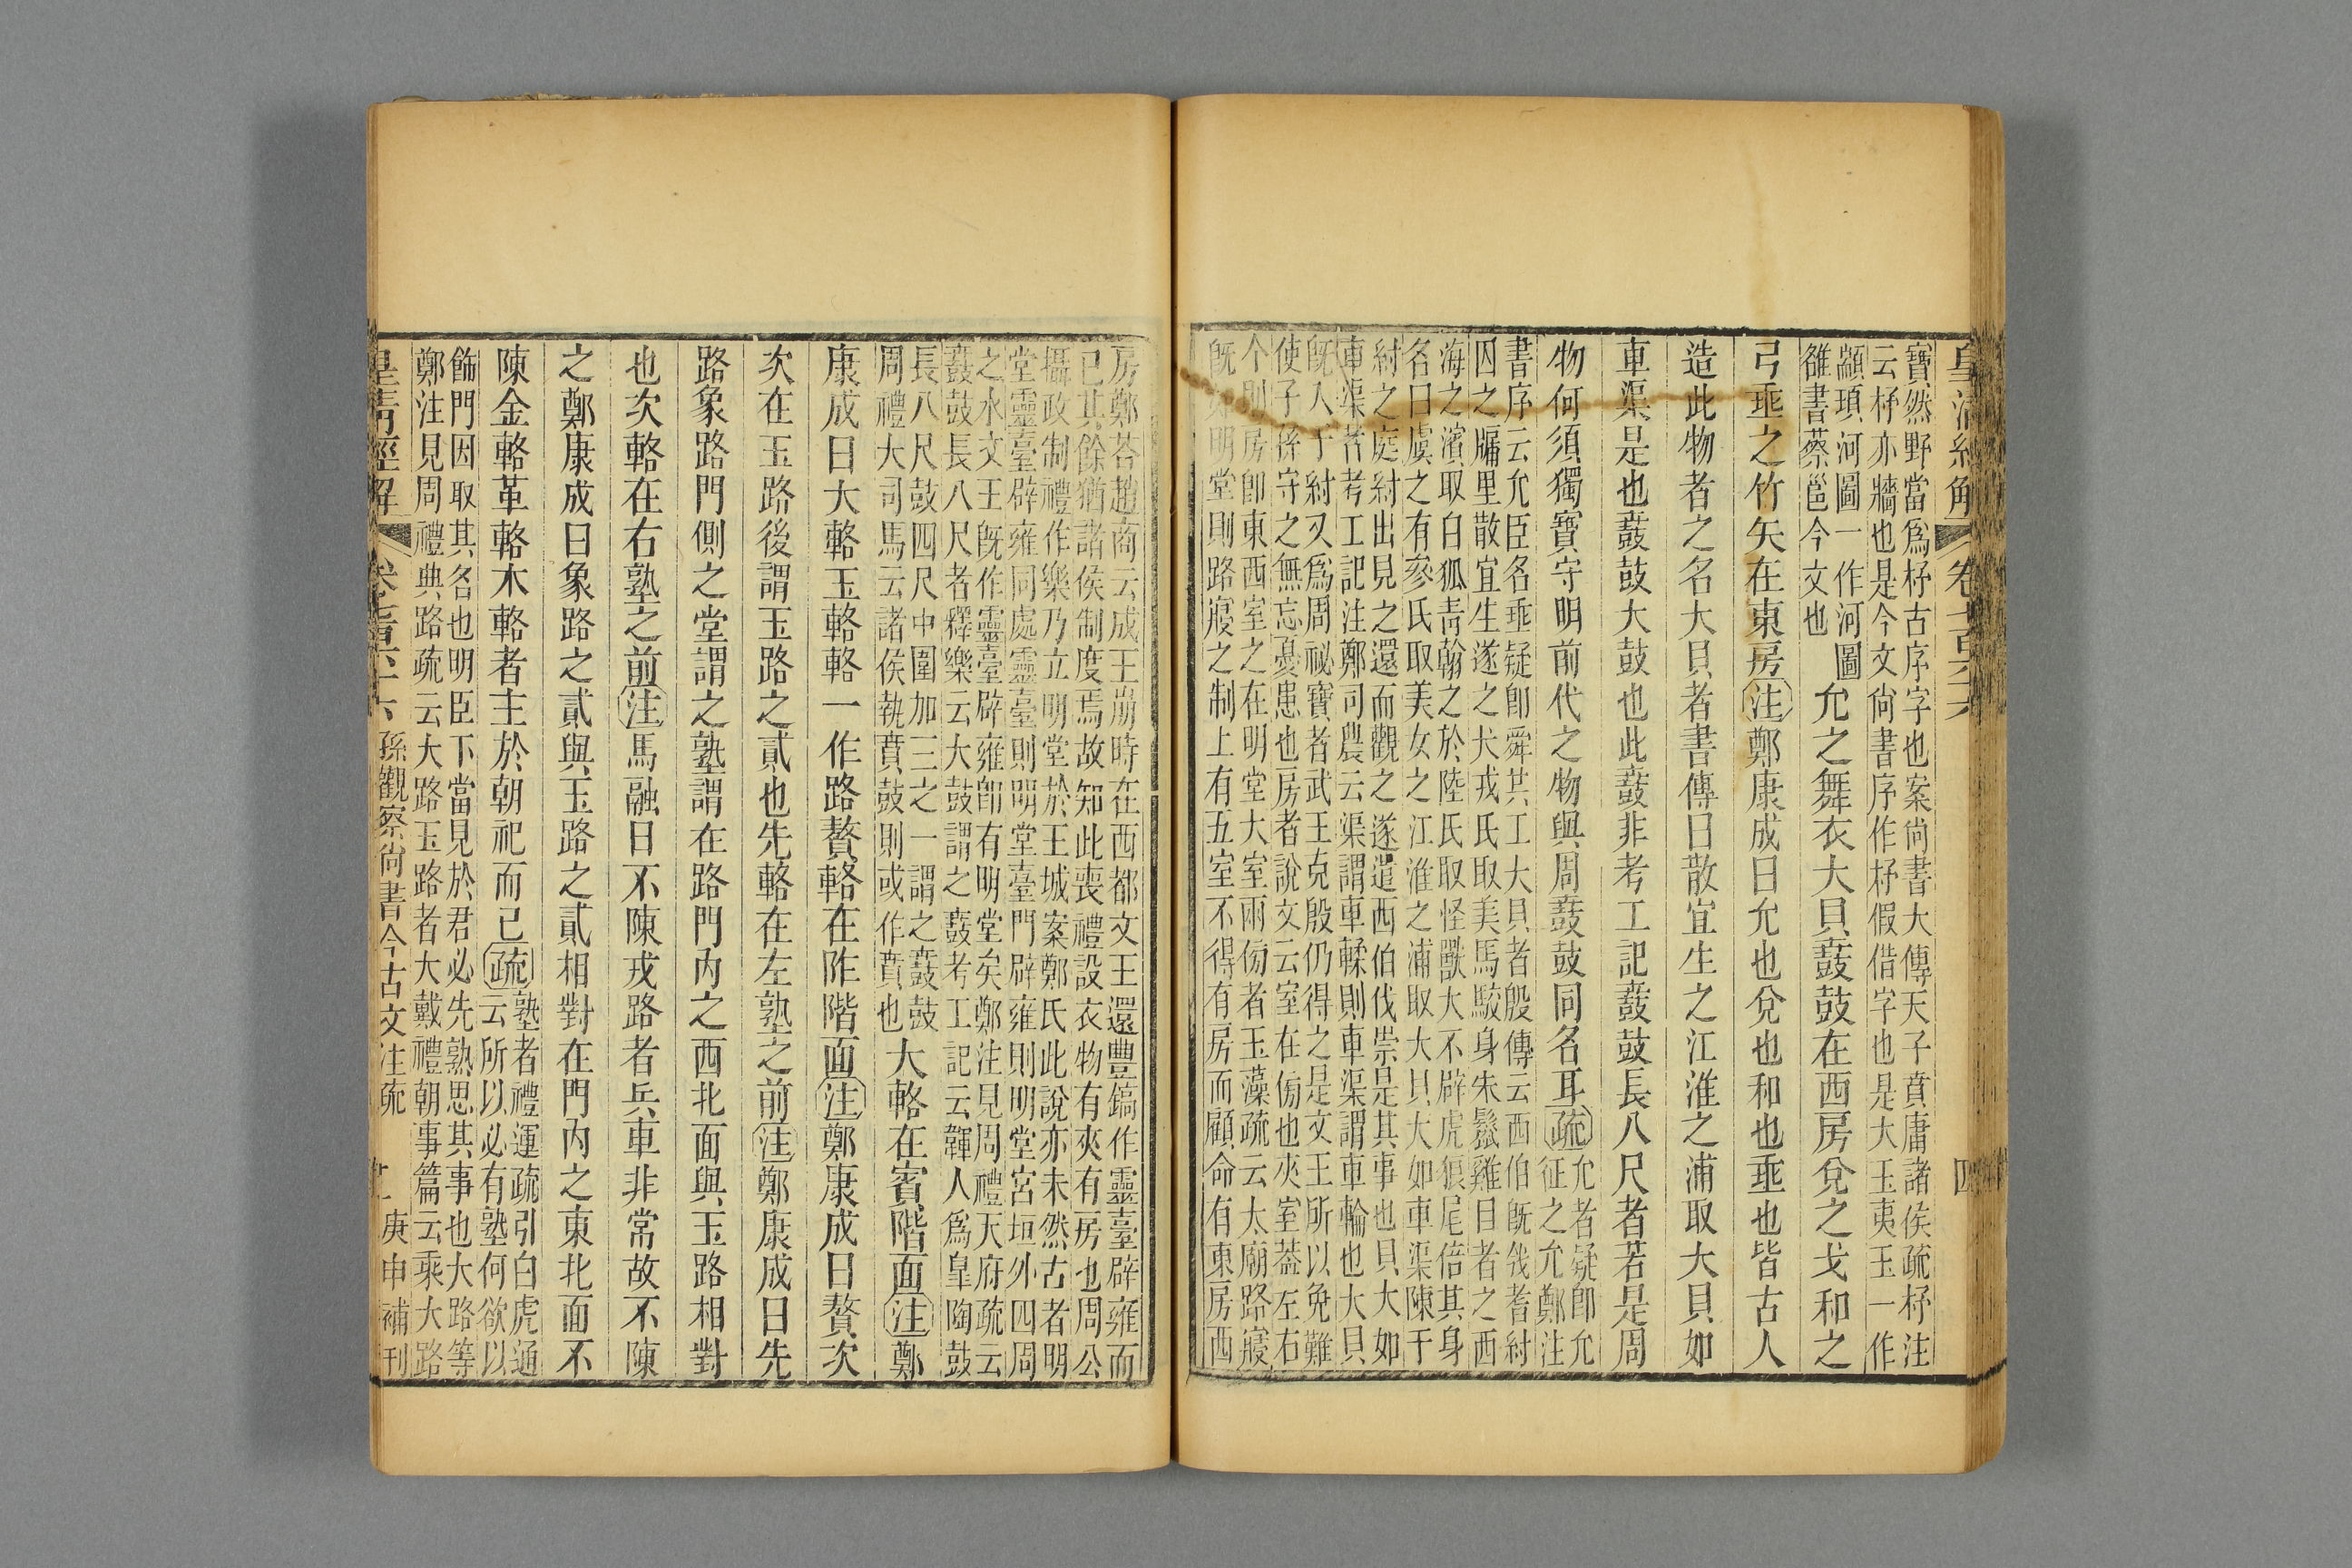 皇清經解 卷七百六十六 四
寶然野當爲杼古序字也案尙書大傳天子賁庸諸侯疏杼注
云杼亦牆也是今文尙書序作杼假借字也是大玉夷玉一作
顓頊河圖一作河圖
雒書蔡邕今文也
允之舞衣大貝鼖鼓在西房兌之戈和之
弓垂之竹矢在東房注鄭康成曰允也兌也和也垂也皆古人
造此物者之名大貝者書傳曰散宜生之江淮之浦取大貝如
車渠是也鼖鼓大鼓也此鼖非考工記鼖鼓長八尺者若是周
物何須獨寶守明前代之物與周鼖鼓同名耳疏
允者疑卽允
征之允鄭注
書序云允臣名垂疑卽舜共工大貝者殷傳云西伯旣戡耆紂
囚之牖里散宜生遂之犬戎氏取美馬駮身朱鬣雞目者之西
海之濱取白狐青翰之於陵氏取怪獸大不辟虎狼尾倍其身
名曰虞之有參氏取美女之江淮之浦取大貝大如車渠陳于
紂之庭紂出見之還而觀之遂遣西伯伐崇是其事也貝大如
車渠者考工記注鄭司農云渠謂車輮則車渠謂車輪也大貝
旣入于紂又爲周祕寶者武王克殷仍得之是文王所以免難
使子孫守之無忘憂患也房者說文云室在傍也夾室葢左右
个則房卽東西室之在明堂大室兩傍者玉藻疏云太廟路寢
旣 明堂則路寢之制上有五室不得有房而顧命有東房西
房鄭荅趙商云成王崩時在西都文王還豐鎬作靈臺辟雍而
已其餘猶諸侯制度焉故知此喪禮設衣物有夾有房也周公
攝政制禮作樂乃立明堂於王城案鄭氏此說亦未然古者明
堂靈臺辟雍同處靈臺則明堂臺門辟雍則明堂宮垣外四周
之水文王旣作靈臺辟雍卽有明堂矣鄭注見周禮天府疏云
鼖鼓長八尺者釋樂云大鼓謂之鼖考工記云韗人爲皐陶鼓
長八尺鼓四尺中圍加三之一謂之鼖鼓
周禮大司馬云諸侯執賁鼓則或作賁也
大輅在賓階面注鄭
康成曰大輅玉輅輅一作路贅輅在阼階面注鄭康成曰贅次
次在玉路後謂玉路之貳也先輅在左塾之前注鄭康成曰先
路象路門側之堂謂之塾謂在路門內之西北面與玉路相對
也次輅在右塾之前注馬融曰不陳戎路者兵車非常故不陳
之鄭康成曰象路之貳與玉路之貳相對在門內之東北面不
陳金輅革輅木輅者主於朝祀而已疏
塾者禮運疏引白虎通
云所以必有塾何欲以
飾門因取其名也明臣下當見於君必先熟思其事也大路等
鄭注見周禮典路疏云大路玉路者大戴禮朝事篇云乘大路
皇清經解 卷七百六十六 孫觀察尙書今古文注疏 庚申補刊